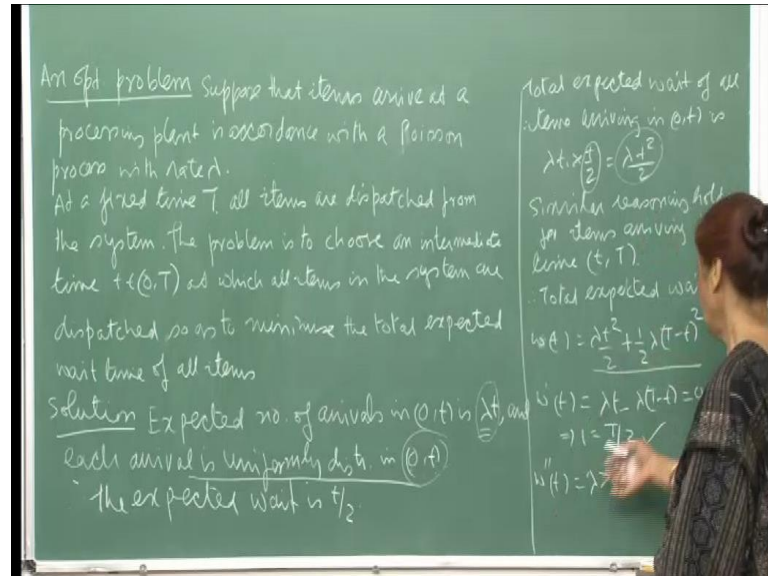 An opt. problem Suppose that items arrive at a
processing plant in accordance with a Poisson
process with rate λ.
At a fixed time T, all items are dispatched from
the system. The problem is to choose an intermediate
time t ∈ (0,T) at which all items in the system are
dispatched so as to minimise the total expected
wait time of all items
Solution Expected no. of arrivals in (0,t) is λt, and
each arrival is uniformly distr. in (0,t)
The expected wait is t/2.
Total expected wait of all
items arriving in (0,t) is
λt. × t/2 = λt²/2
Similar reasoning hold
for items arriving
time (t, T).
∴ Total expected wai
w(t) = λt²/2 + 1/2 λ(T-t)²
w'(t) = λt - λ(T-t) = 0
⇒ t = T/2 ✓
w''(t) = λ